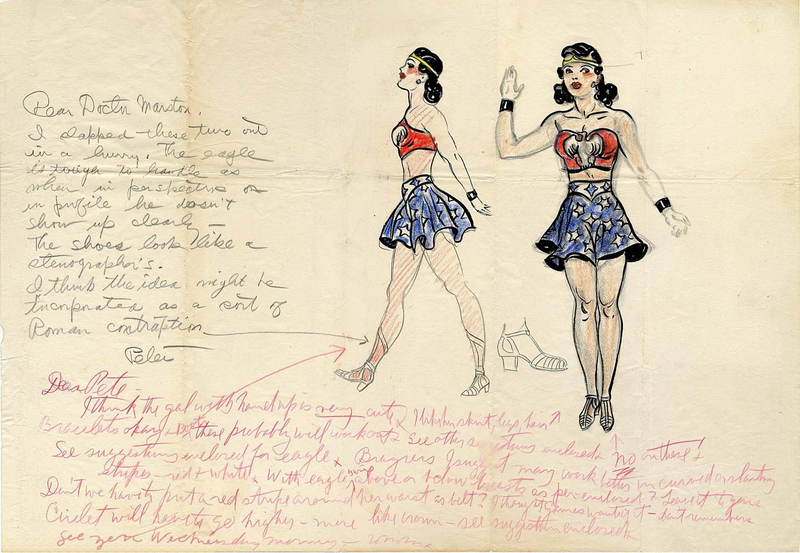 Dear Doctor Marston,
I slapped these two out
in a hurry. The eagle
is tough to handle as
when in perspective or
in profile he doesn't
show up clearly —
The shoes look like a
stenographer's.
I think the idea might be
incorporated as a sort of
Roman contraption
Peter
Dear Pete —
I think the gal with hand up is very cute. I like her skirt, legs, hair.
Bracelets okay + boots. these probably will work out. See other suggestions enclosed. No on these +
stripes — red + white. With eagle's wings above or below breasts as per enclosed? Leave it to you.
See suggestions enclosed for eagle Brassiere I suggest may work better in curved or slanting
Don't we have to put a red stripe around her waist as belt? I thought Gaines wanted it — don't remember
Circlet will have to go higher — more like crown — see suggestion enclosed
See you Wednesday morning —